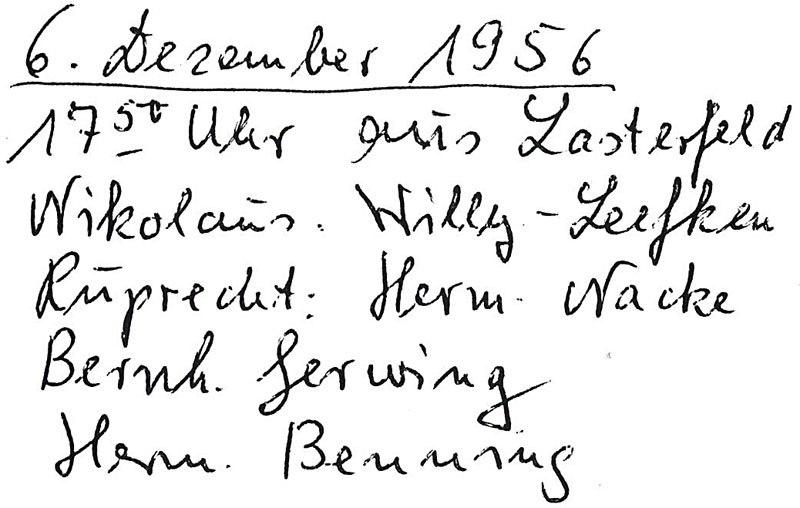 6. Dezember 1956
17 50 Uhr aus Lasterfeld
Nikolaus. Willy - Leefken
Ruprecht: Herm. Nacke
Bernh. Gerwing
Herm. Benning